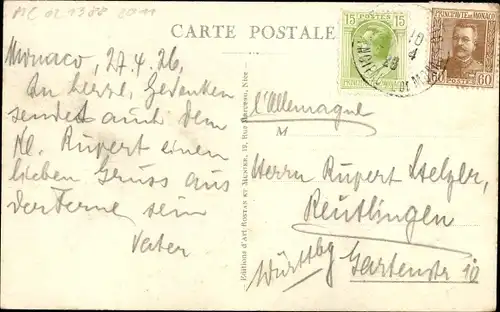 CARTE POSTALE
15 POSTES 15
PRINCIPAUTE DE MONACO
60 POSTES 60
Monaco, 27.4.26.
In herzl. Gedenken
sendet auch dem
kl. Rupert einen
lieben Gruss aus
der Ferne sein
Vater
Editions d'Art ROSTAN ET MUNIER, 19, Rue Marceau, Nice
l'Allemagne
M
Herrn Rupert Stelzer,
Reutlingen
Württbg Gartenstr 10